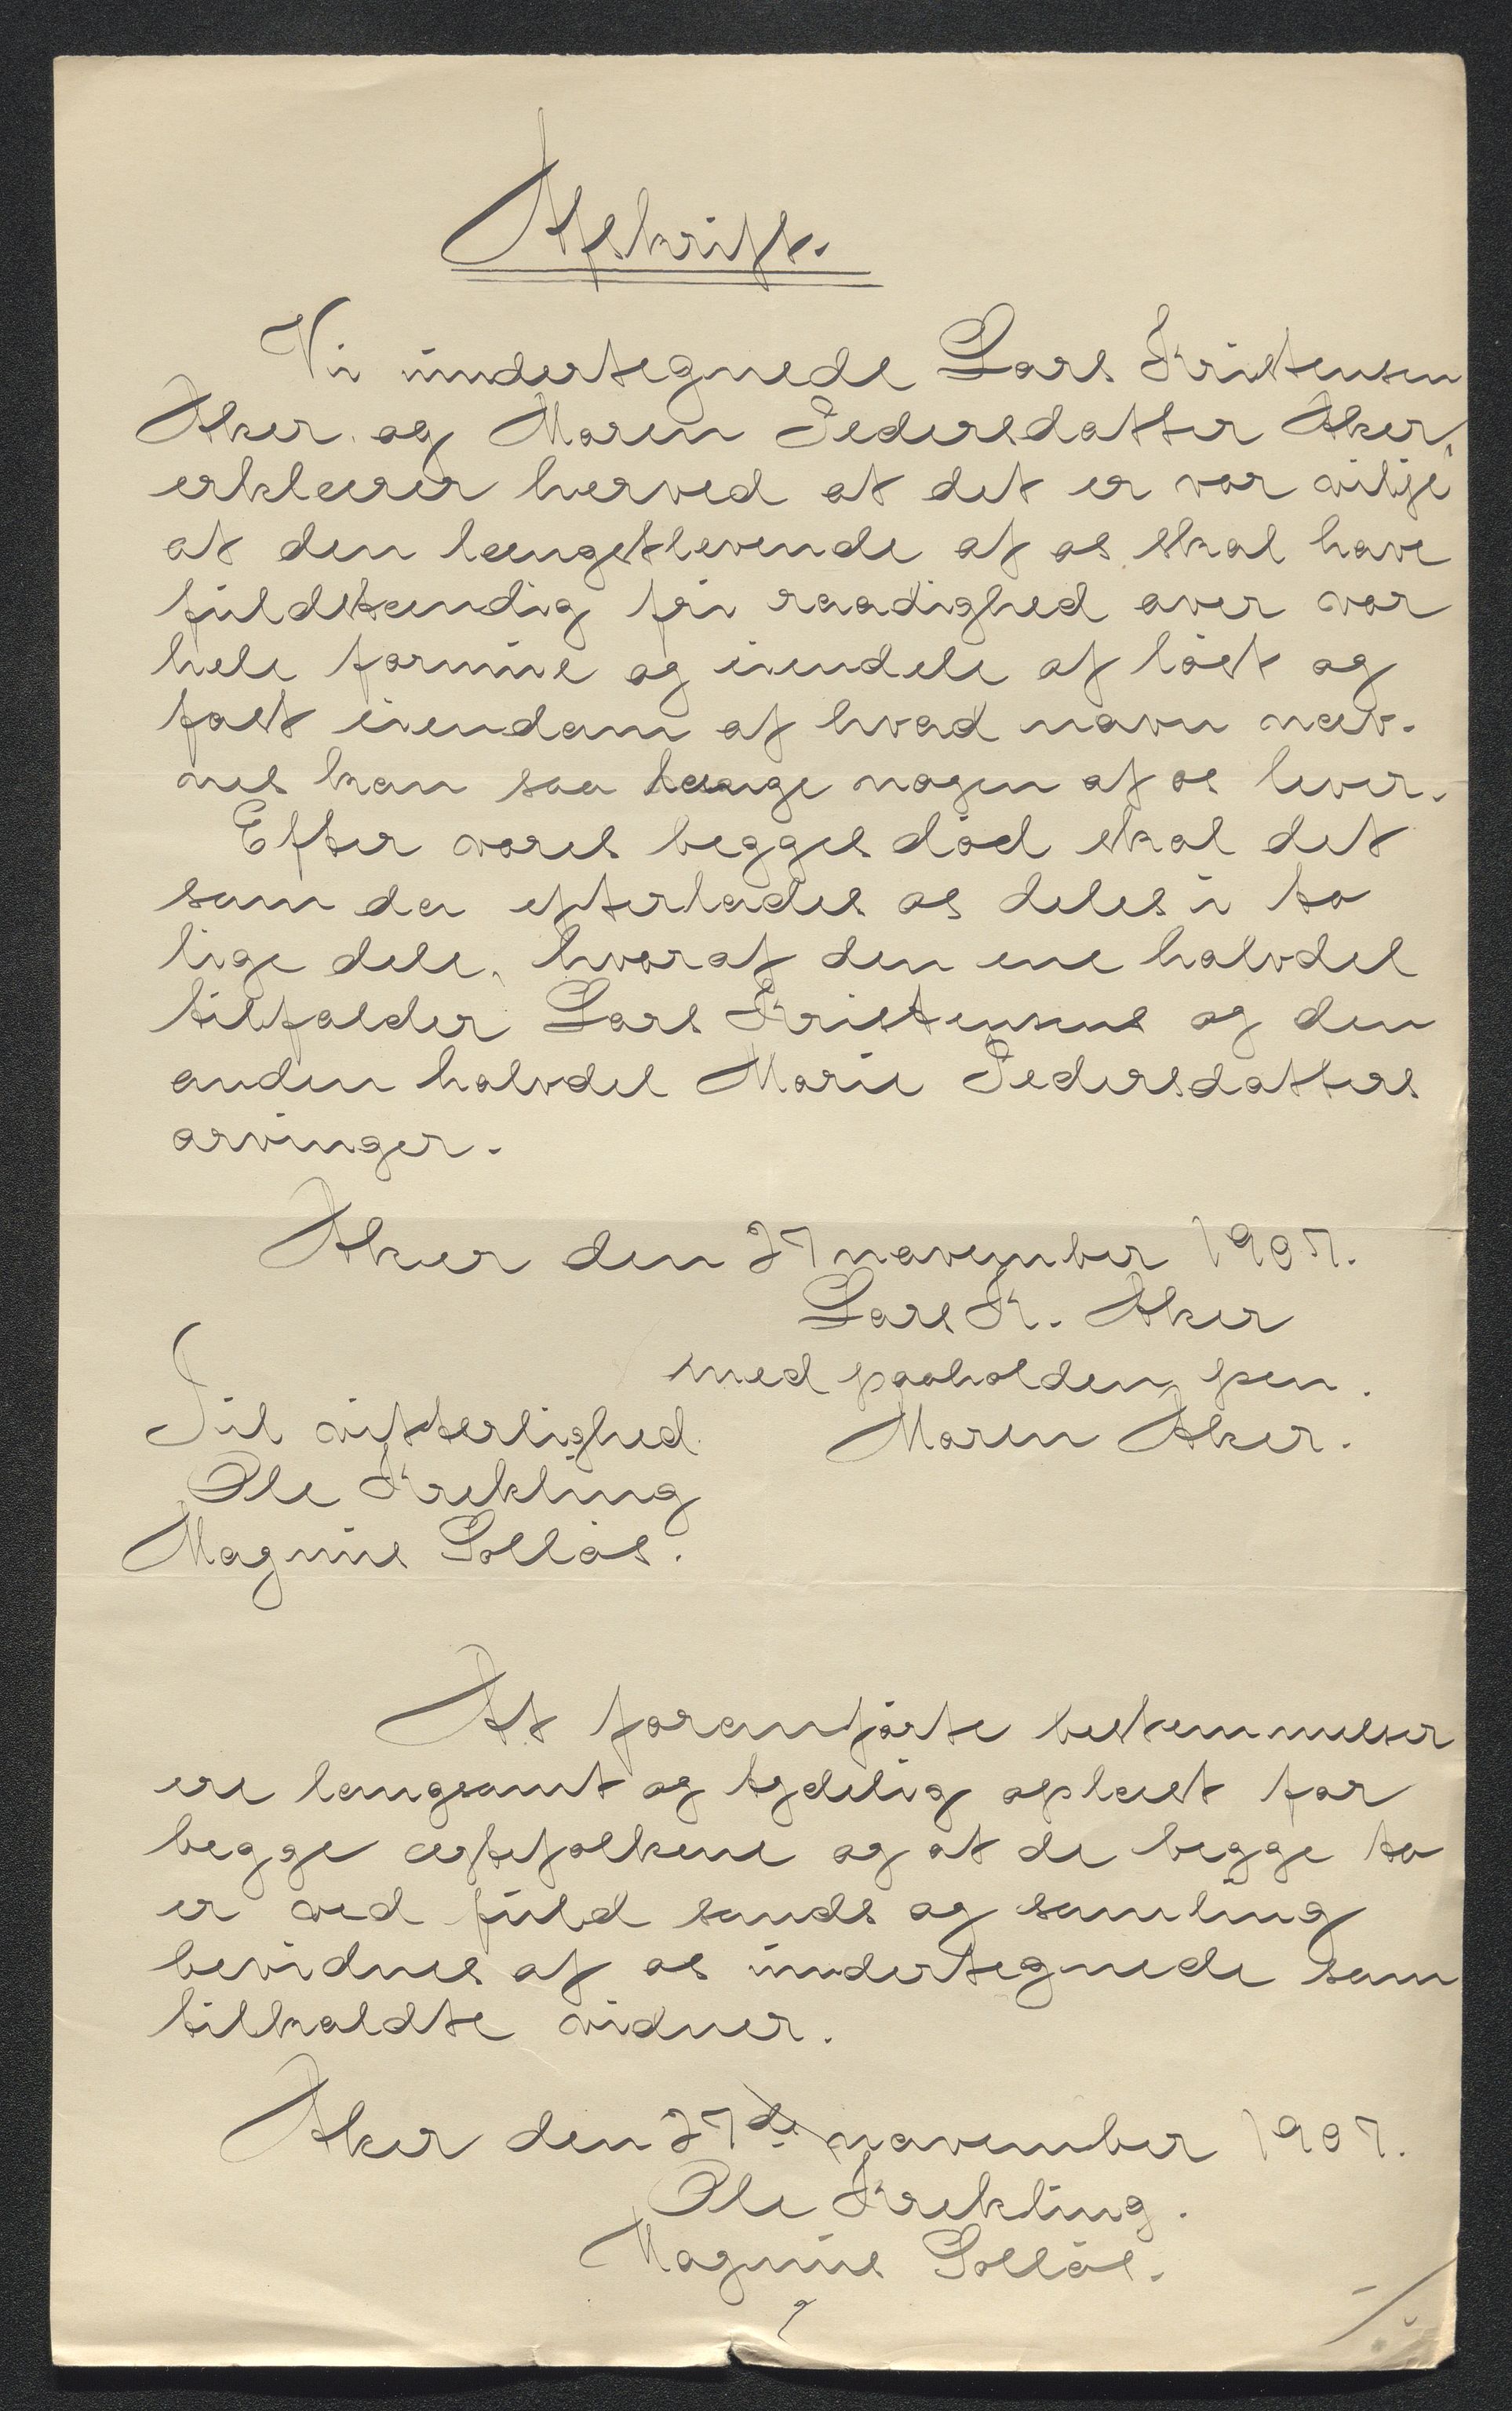 Afskrift.
Vi undertegnede Lars Kristensen
Aker og Maren Pedersdatter Aker,
erklærer herved at det er vor vilje
at den længstlevende af os skal have
fuldstændig fri raadighed over vor
hele formue og eiendele af löst og
fast eiendom af hvad navn næv-
nes kan saa længe nogen af os lever.
Efter vores begges död skal det
som da efterlades os deles i to
lige dele, hvoraf den ene halvdel
tilfalder Lars Kristensens og den
anden halvdel Marie Pedersdatters
arvinger.
Aker den 27 november 1907.
Lars K. Aker
med paaholden pen.
Til vitterlighed Maren Aker.
Ole Krekling
Magnus Sollös.
At foranförte bestemmelser
ere langsomt og tydelig oplæst for
begge ægtefolkene og at de begge to
er ved fuld sands og samling
bevidnes af os undertegnede som
tilkaldte vidner.
Aker den 27de november 1907.
Ole Krekling.
Magnus Sollös.